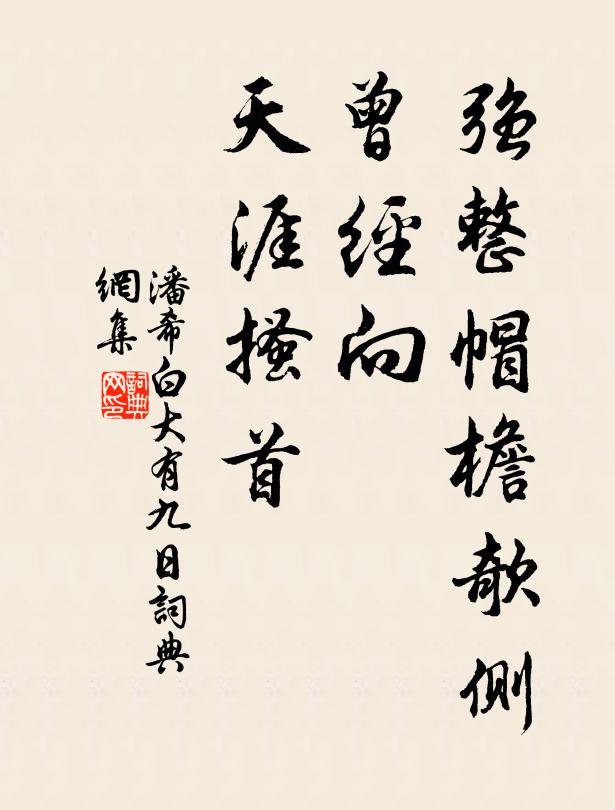 强整帽檐欹側
曾經向
天涯搔首
潘希白大有九日詞典
網集
詞典
网印